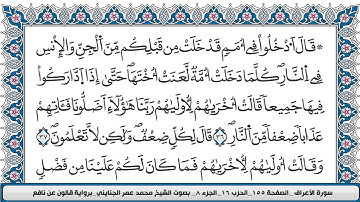 ۞ قَالَ اَ۟دْخُلُواْ فِےٓ أُمَمٖ قَدْ خَلَتْ مِن قَبْلِكُم مِّنَ اَ۬لْجِنِّ وَالْإِنسِ
فِے اِ۬لنَّارِۖ كُلَّمَا دَخَلَتْ أُمَّةٞ لَّعَنَتُ اخْتَهَاۖ حَتَّىٰٓ إِذَا اَ۪دَّارَكُواْ
فِيهَا جَمِيعاٗ قَالَتْ أُخْر۪ىٰهُمْ لِأُول۪ىٰهُمْ رَبَّنَا هَٰٓؤُلَآءِ اَ۬ضَلُّونَا فَـَٔاتِهِمْ
عَذَاباٗ ضِعْفاٗ مِّنَ اَ۬لنّ۪ارِۖ ٣٦ قَالَ لِكُلّٖ ضِعْفٞ وَلَٰكِن لَّا تَعْلَمُونَۖ ٣٧
وَقَالَتُ اول۪ىٰهُمْ لِأُخْر۪ىٰهُمْ فَمَا كَانَ لَكُمْ عَلَيْنَا مِن فَضْلٖ
سورة الأعراف _ الصفحة ١٥٥ _ الحزب ١٦ _ الجزء ٨ _ بصوت الشيخ محمد عمر الجنايني _ برواية قالون عن نافع